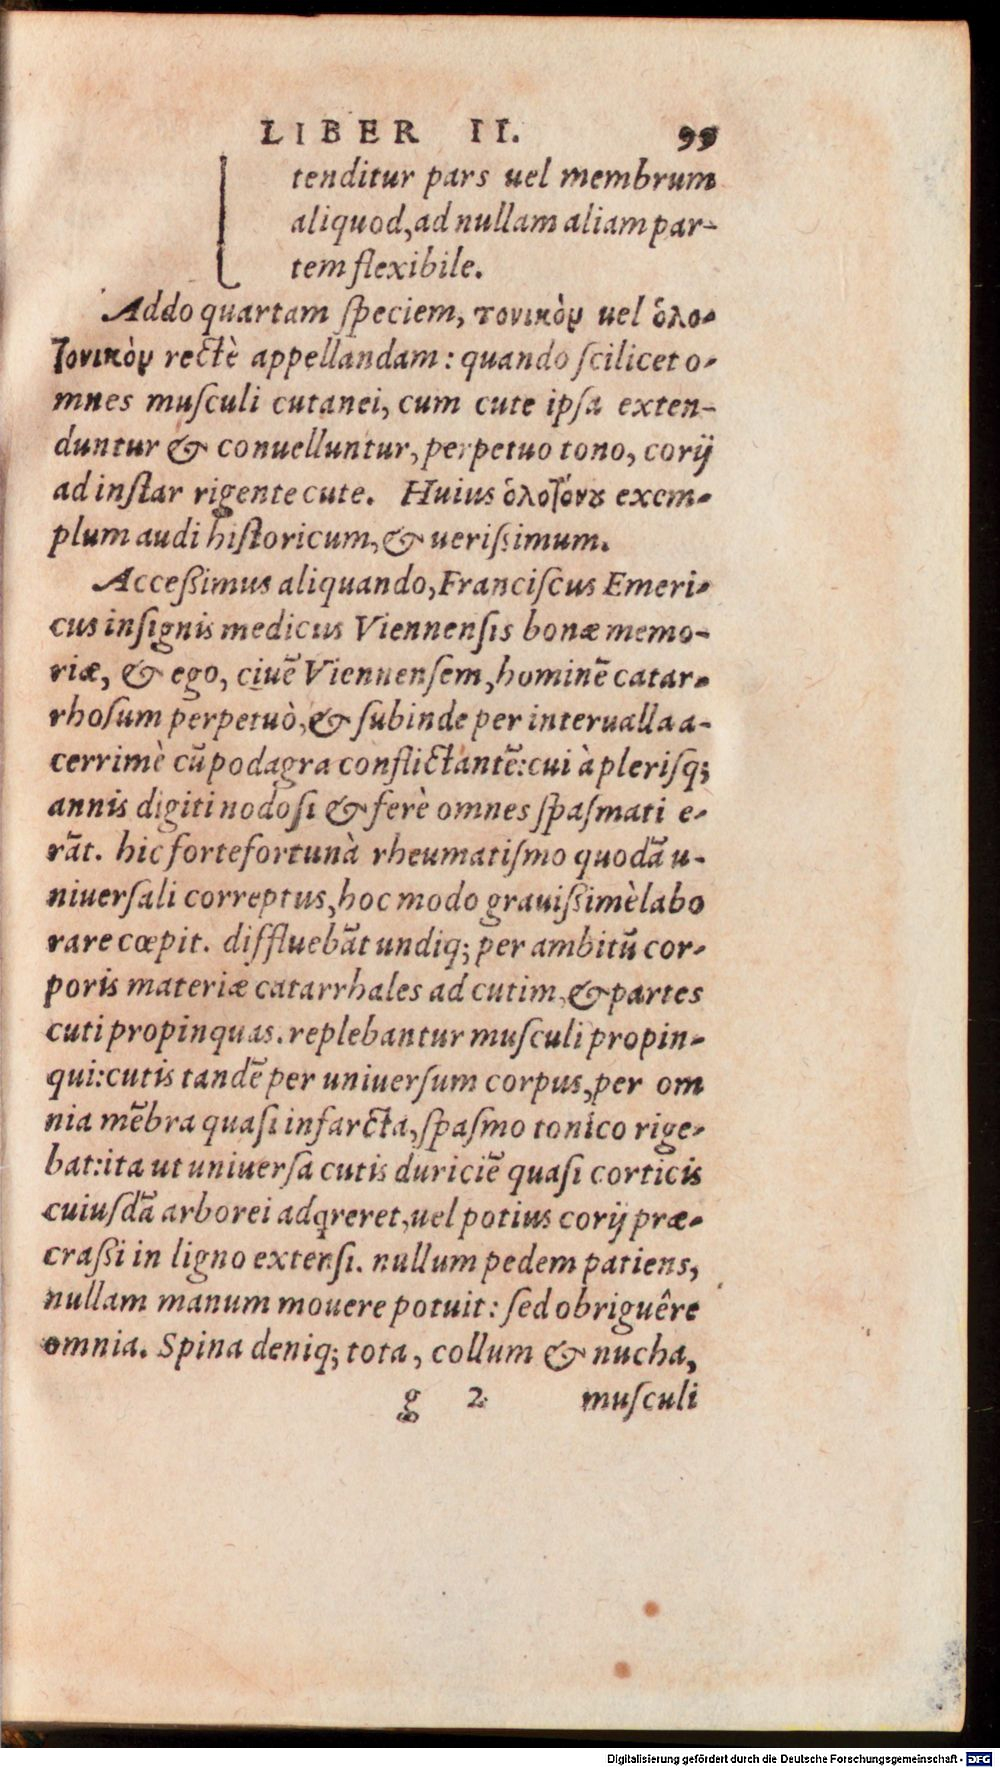 LIBER II. 99
tenditur pars uel membrum
aliquod, ad nullam aliam par-
tem flexibile.
Addo quartam ſpeciem, τονικὸν uel ὁλο-
τονικὸν rectè appellandam: quando ſcilicet o-
mnes muſculi cutanei, cum cute ipſa exten-
duntur & conuelluntur, perpetuo tono, corij
ad inſtar rigente cute. Huius ὁλοτόνου exem-
plum audi hiſtoricum, & ueriſsimum.
Acceſsimus aliquando, Franciſcus Emeri-
cus inſignis medicus Viennenſis bonæ memo-
riæ, & ego, ciuē Viennenſem, hominē catar-
rhoſum perpetuò, & ſubinde per interualla a-
cerrimè cū podagra conflictantē: cui à pleriſq;
annis digiti nodoſi & ferè omnes ſpaſmati e-
rāt. hic fortefortunà rheumatiſmo quodā u-
niuerſali correptus, hoc modo grauiſsimè labo
rare cœpit. diffluebāt undiq; per ambitū cor-
poris materiæ catarrhales ad cutim, & partes
cuti propinquas. replebantur muſculi propin-
qui: cutis tandē per uniuerſum corpus, per om
nia mēbra quaſi infarcta, ſpaſmo tonico rige-
bat: ita ut uniuerſa cutis duriciē quaſi corticis
cuiuſdā arborei adqreret, uel potius corij præ-
craſsi in ligno extenſi. nullum pedem patiens,
nullam manum mouere potuit: ſed obriguêre
omnia. Spina deniq; tota, collum & nucha,
g 2 muſculi
Digitalisierung gefördert durch die Deutsche Forschungsgemeinschaft - DFG